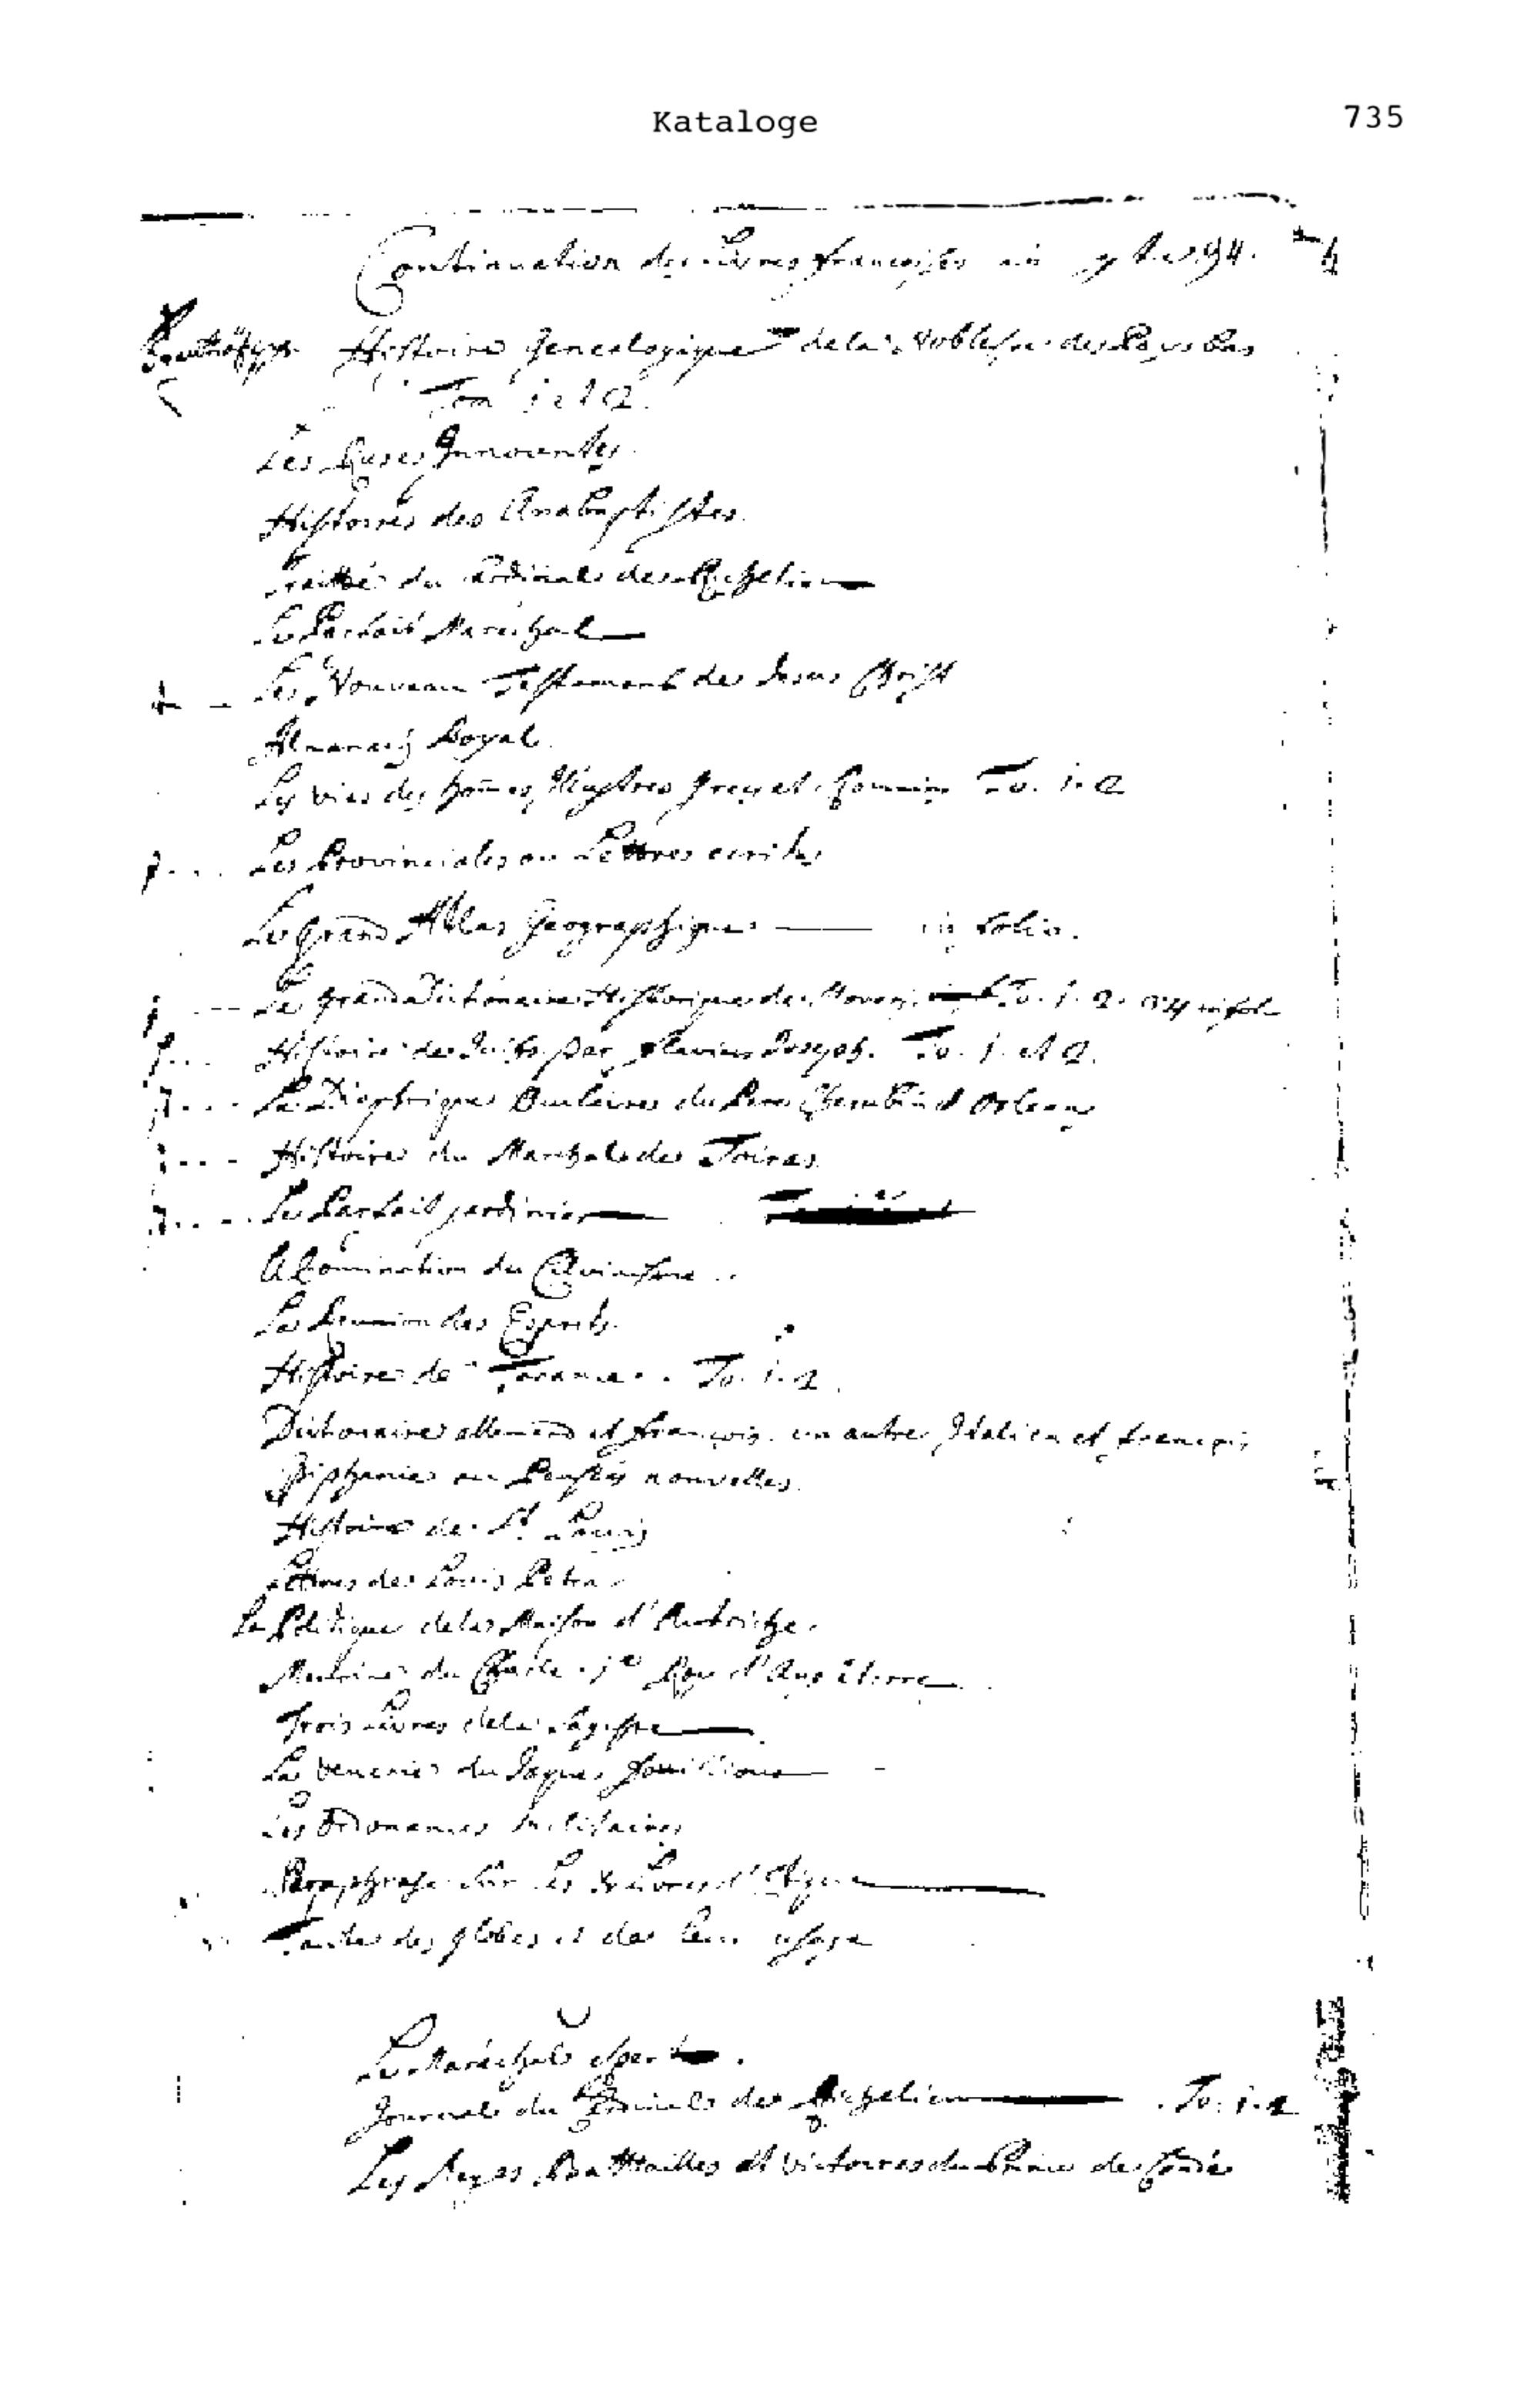 Kataloge 735
Continuation des Livres françoises in
Histoire Genealogique de la Noblesse des Pays Bas
Tom 1 et 2.
Les Ruses Innocentes
Histoires des Anabaptistes.
Traitté du Cardinale de Richelieu
Le Parfait Mareschal
Les Nouveau Testament de Jesus Christ
Almanach Royal
Les vies des hom̄es Illustres grecs et Romains To. 1. 2
Les Provinciales ou Lettres ecrites
Le grand Atlas Geographique in folio.
Le grand Dictionaire Historique de Morery To. 1. 2. infol
Histoire des Juifs par Flavius Joseph. To. 1. et 2.
La Dioptrique Oculaire du Pere Cherubin d'Orleans
Histoire du Marchale de Toiras
Le Parfait jardinier
Abomination du Calvinisme
La Reunion des Esprits
Histoire de To. 1. 2.
Dictionaire allemand et françois. un autre Italien et françois
ou Pensées nouvelles.
Histoire de St. Louis
Lettres de Louis
La Politique de la Maison d'Autriche.
du Charle 1e Roy d'Angleterre
Trois Livres de la Sagesse
La Venerie du Jaques Fouilloux
Les Ordonances militaires
Paraphrase sur les
des globes et de leur usage
Le Maréchale expert.
Journal du Cardinale de Richelieu To. 1. 2
Les Sieges Battailles et victoires du Prince de Condé